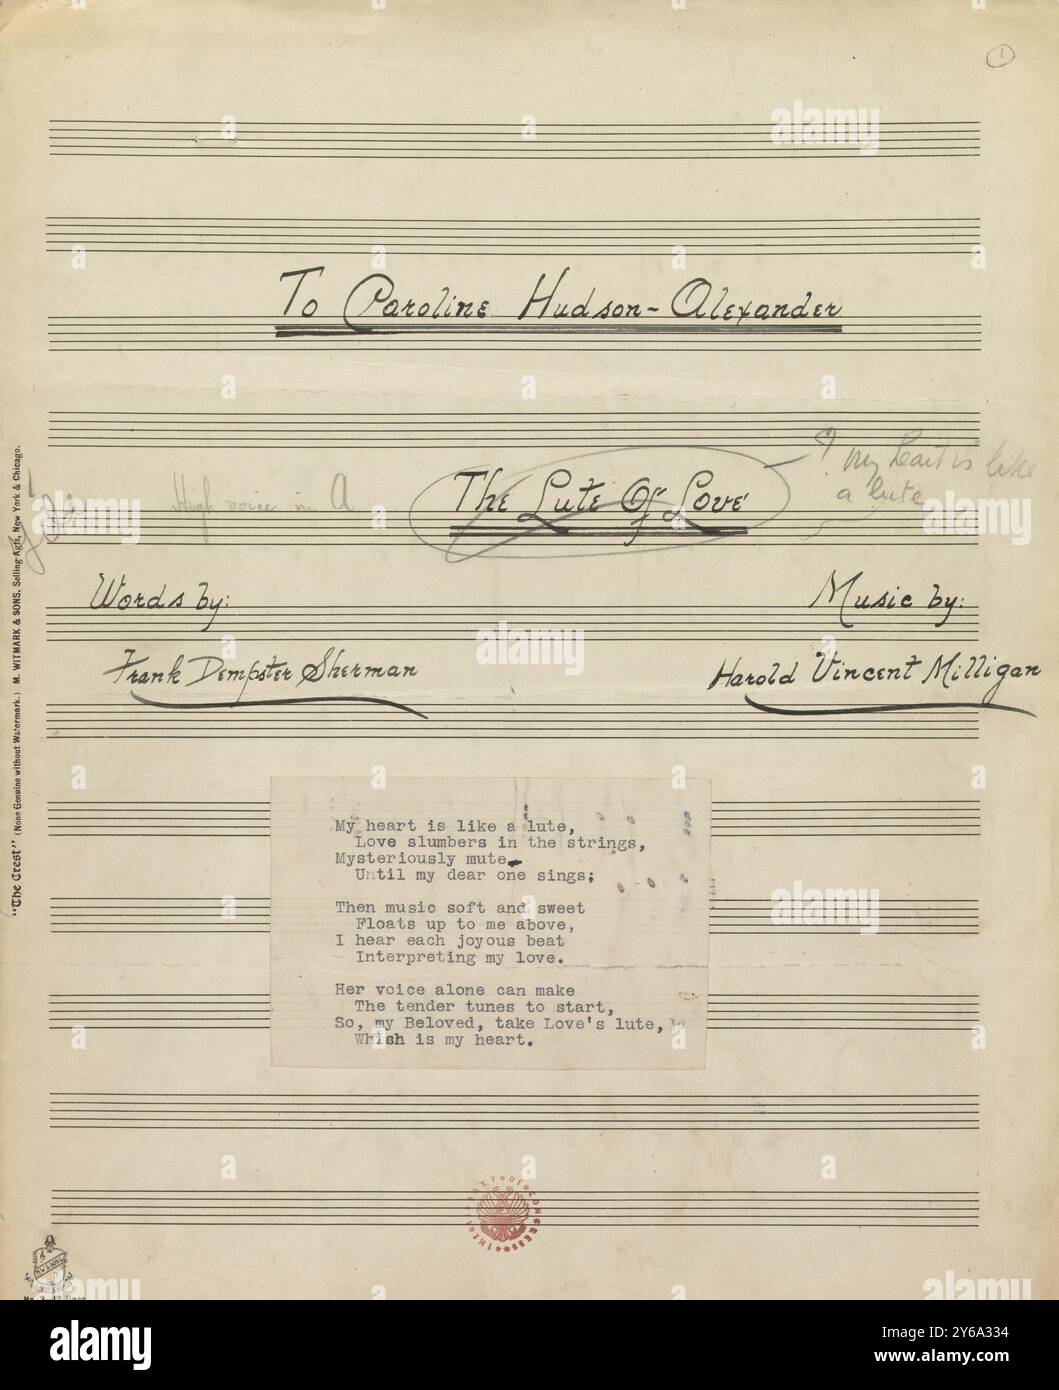 1
To Caroline Hudson-Alexander
High voice in A
The Lute Of Love
? My heart is like
a lute
Words by:
Music by:
Frank Dempster Sherman
Harold Vincent Milligan
My heart is like a lute,
Love slumbers in the strings,
Mysteriously mute
Until my dear one sings;
Then music soft and sweet
Floats up to me above,
I hear each joyous beat
Interpreting my love.
Her voice alone can make
The tender tunes to start,
So, my Beloved, take Love's lute,
Which is my heart.
"The Crest" (None Genuine without Watermark.) M. WITMARK & SONS, Selling Agts, New York & Chicago.
THE LIBRARY OF CONGRESS
alamy
Image ID: 2Y6A334
www.alamy.com